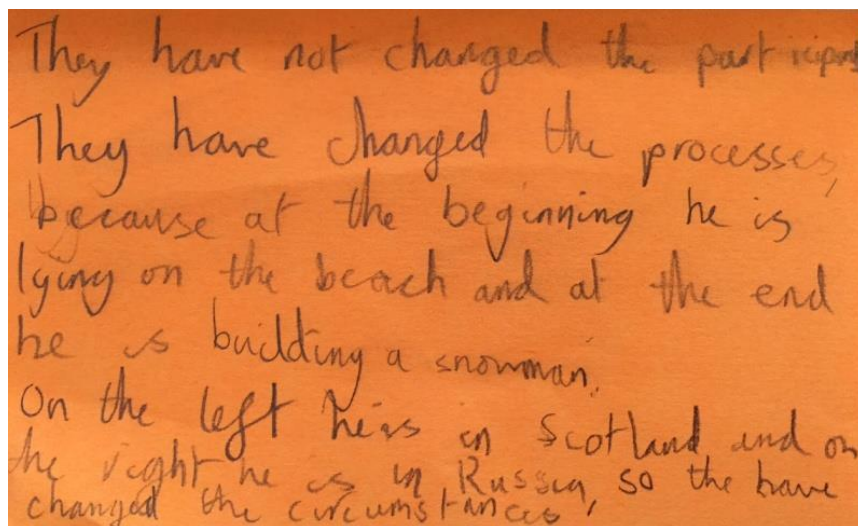 They have not changed the participants
They have changed the processes,
because at the beginning he is
lying on the beach and at the end
he is building a snowman.
On the left he is in Scotland and on
the right he is in Russia, so the have
changed the circumstances